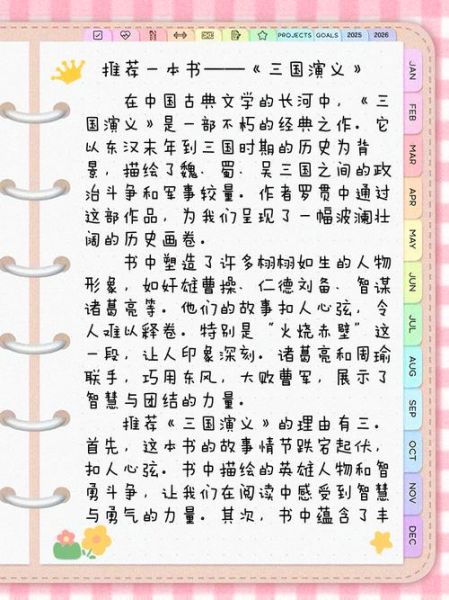 PROJECTS GOALS 2025 2026
推荐一本书——《三国演义》
在中国古典文学的长河中，《三
国演义》是一部不朽的经典之作。它
以东汉末年到三国时期的历史为背
景，描绘了魏、蜀、吴三国之间的政
治斗争和军事较量。作者罗贯中通过
这部作品，为我们呈现了一幅波澜壮
阔的历史画卷。
书中塑造了许多栩栩如生的人物
形象，如奸雄曹操、仁德刘备、智谋
诸葛亮等。他们的故事扣人心弦，令
人难以释卷。特别是“火烧赤壁”这
一段，让人印象深刻。诸葛亮和周瑜
联手，巧用东风，大败曹军，展示了
智慧与团结的力量。
推荐《三国演义》的理由有三。
首先，这本书的故事情节跌宕起伏，
扣人心弦。书中描绘的英雄人物和智
勇斗争，让我们在阅读中感受到智慧
与勇气的力量。其次，书中蕴含了丰
JAN
FEB
MAR
APR
MAY
JUN
JUL
AUG
SEP
OCT
NOV
DEC